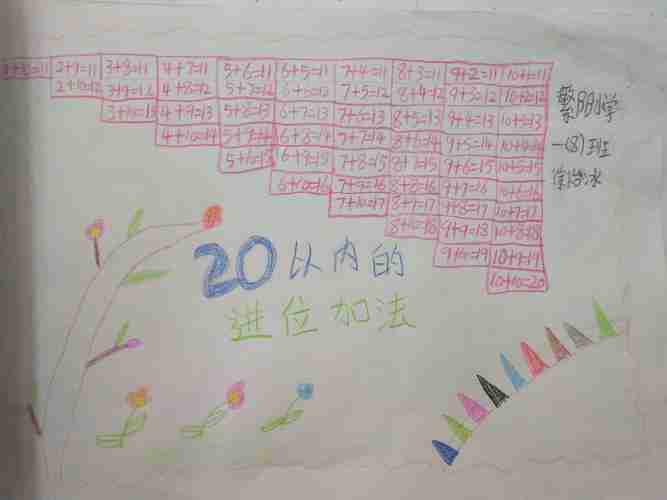 1+10=11 2+9=11 3+8=11 4+7=11 5+6=11 6+5=11 7+4=11 8+3=11 9+2=11 10+1=11
2+10=12 3+9=12 4+8=12 5+7=12 6+6=12 7+5=12 8+4=12 9+3=12 10+2=12
3+10=13 4+9=13 5+8=13 6+7=13 7+6=13 8+5=13 9+4=13 10+3=13
4+10=14 5+9=14 6+8=14 7+7=14 8+6=14 9+5=14 10+4=14
5+10=15 6+9=15 7+8=15 8+7=15 9+6=15 10+5=15
6+10=16 7+9=16 8+8=16 9+7=16 10+6=16
7+10=17 8+9=17 9+8=17 10+7=17
8+10=18 9+9=18 10+8=18
9+10=19 10+9=19
10+10=20
小学
一(8)班
20以内的
进位加法